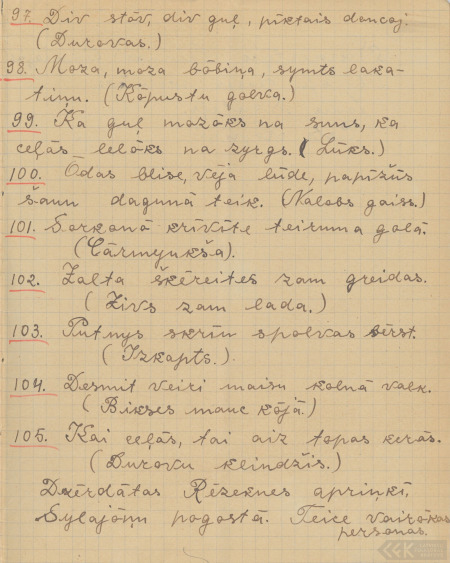 97. Div stōv, div guļ, pīktais dencoj.
(Durovas.)
98. Moza, moza bōbiņa, symts laka-
tiņu. (Kōpustu golva.)
99. Ka guļ mozōks na suns, ka
ceļās lelōks na zyrgs. (Lūks.)
100. Ōdas blise, vējā lūde, papīžūs
šaun dagunā teik. (Nalobs gaiss.)
101. Sorkonā krīvīte teiruma golā.
(Cārmyukša).
102. Zalta škēreites zam greidas.
(Zivs zam lada.)
103. Putnys skrīn spolvas bērst.
(Izkapts.)
104. Desmit veiri maisu kolnā valk.
(Bikses mauc kōjā.)
105. Kai ceļās, tai aiz topas kerās.
(Durovu klindžis.)
Dzērdātas Rēzeknes apriņkī,
Sylajōņu pogostā. Teice vairōkas
personas.